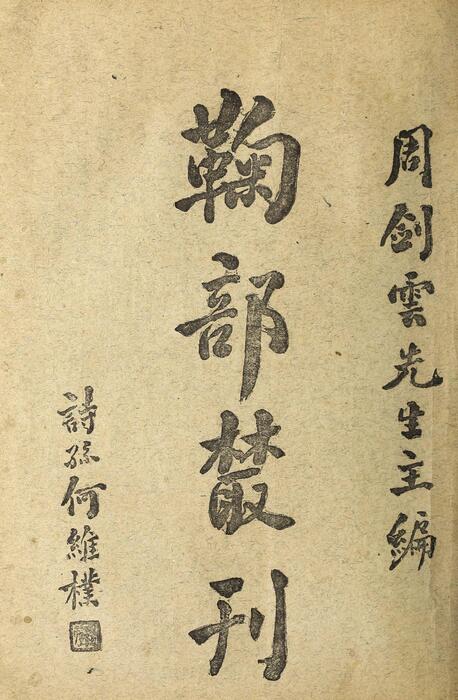 周剑雲先生主編
鞠部叢刊
詩孫何維樸